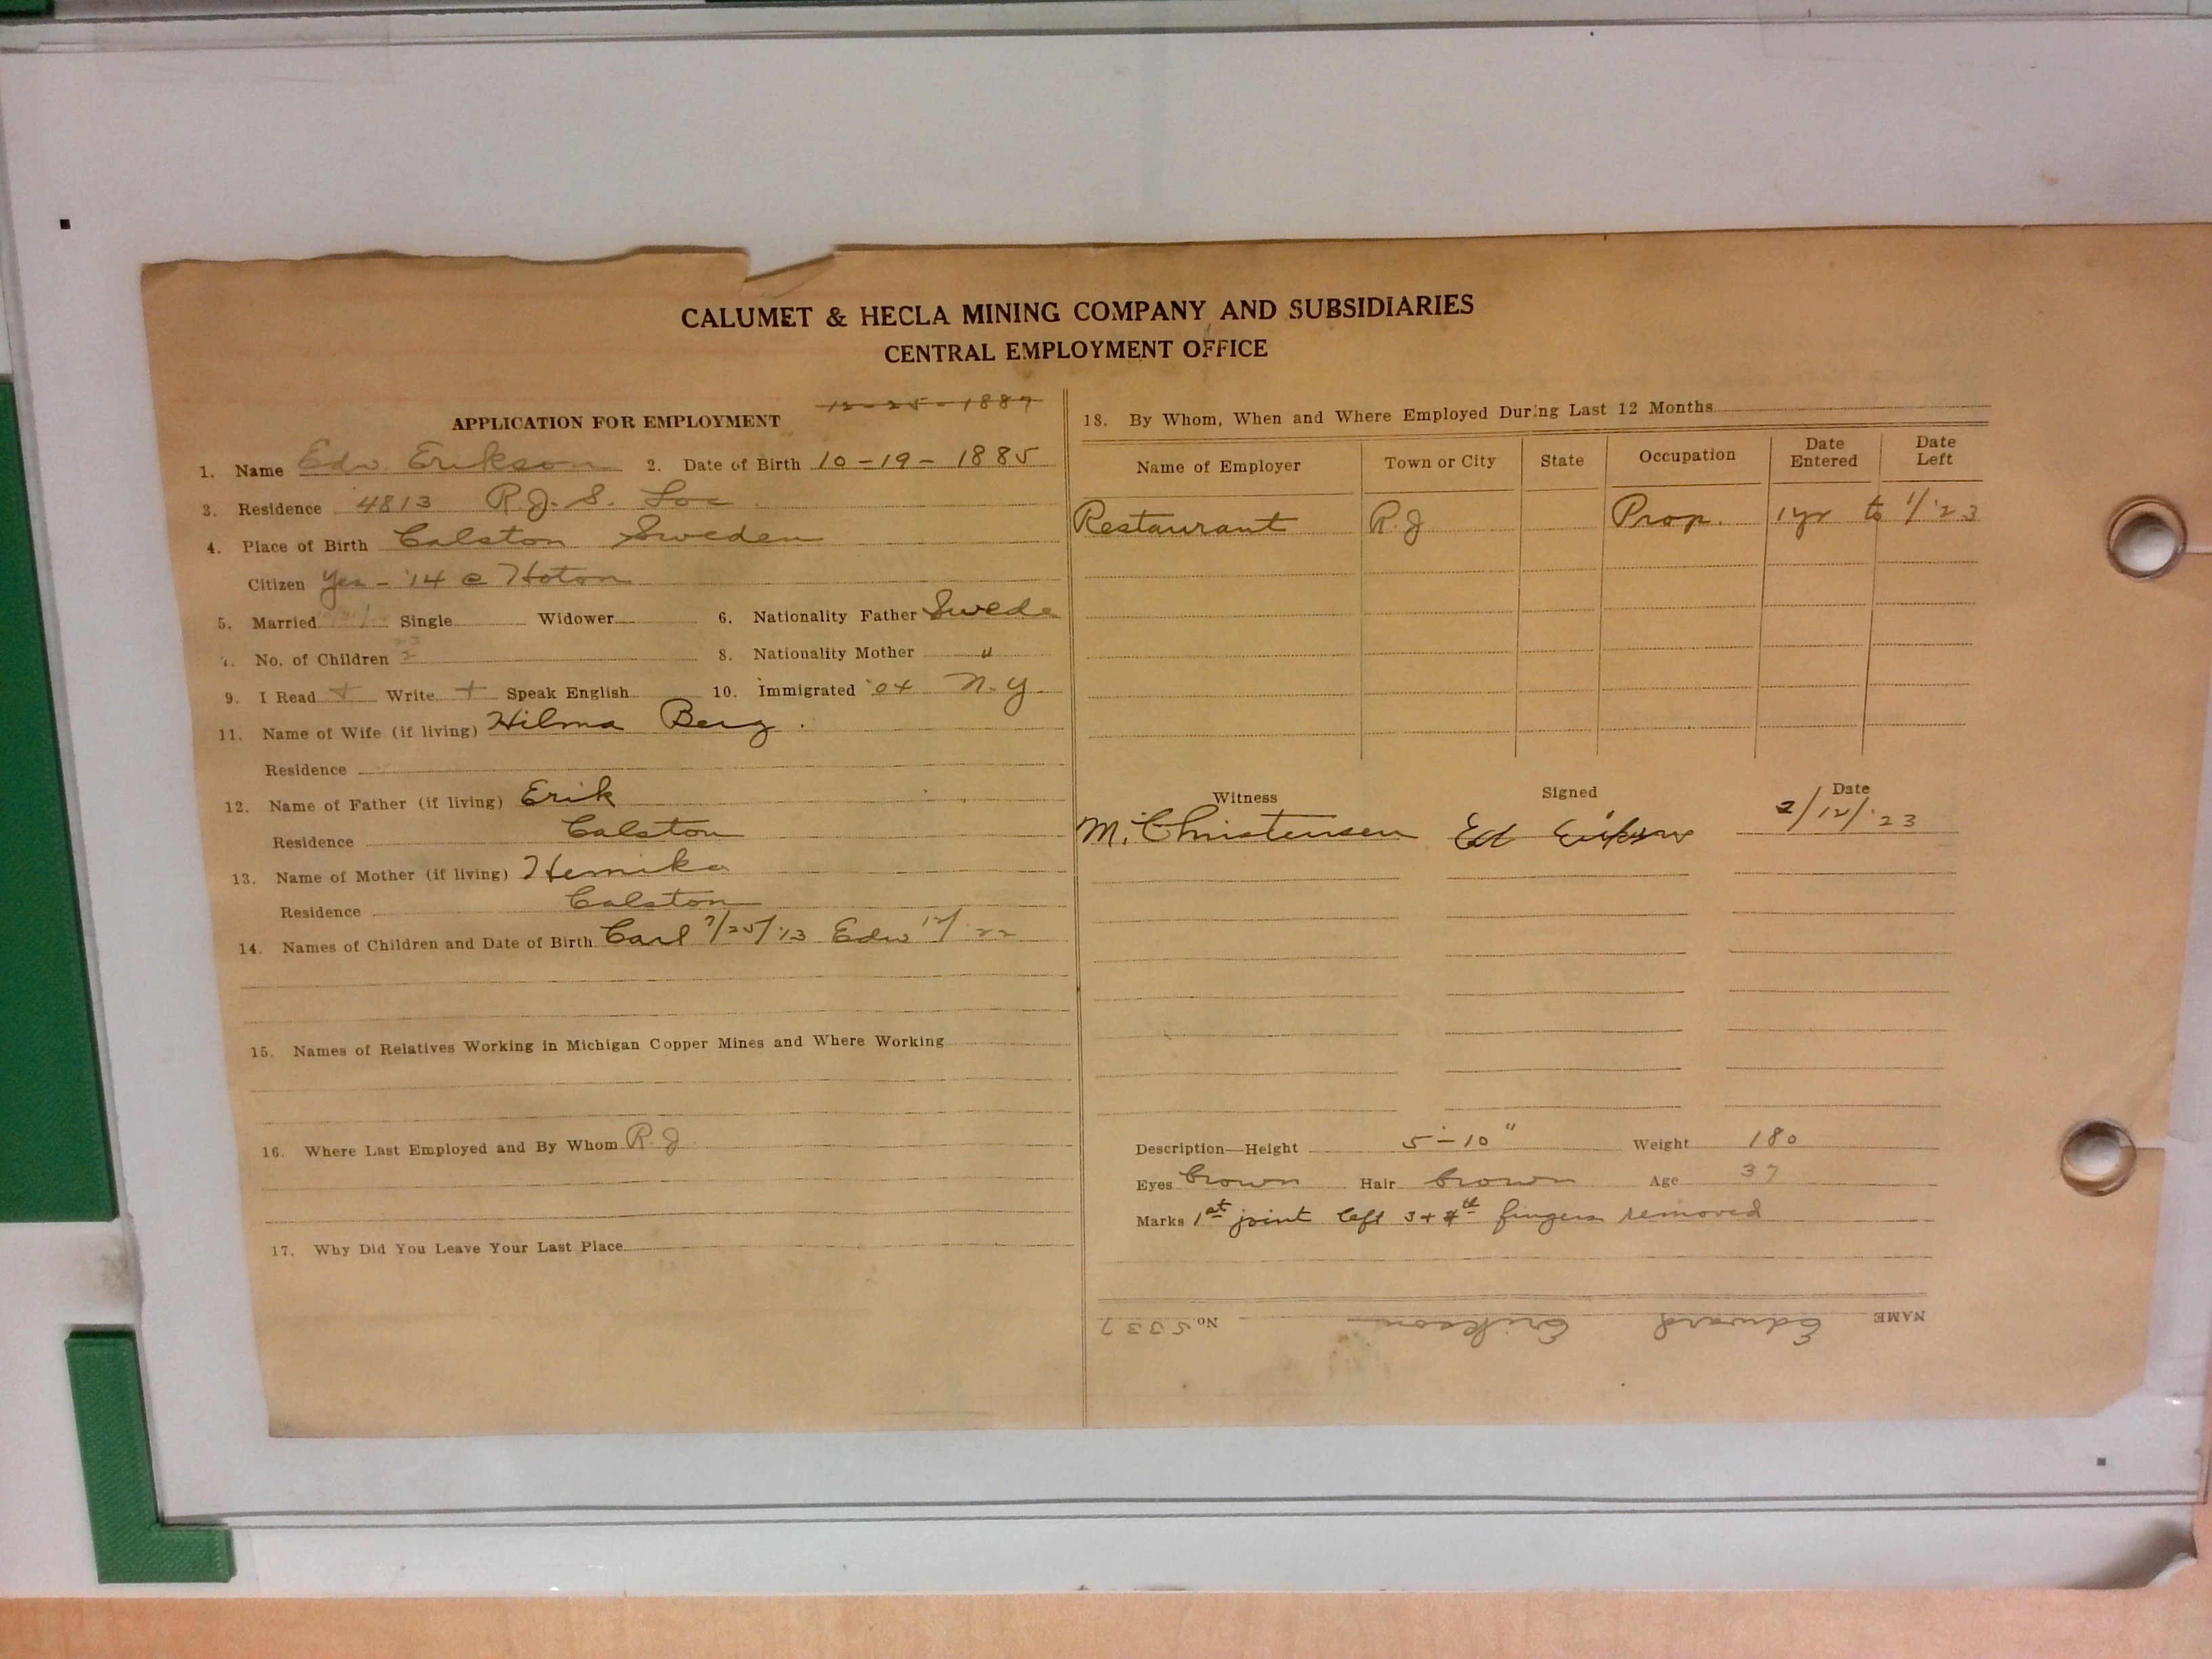 CALUMET & HECLA MINING COMPANY AND SUBSIDIARIES
CENTRAL EMPLOYMENT OFFICE
APPLICATION FOR EMPLOYMENT 12-25-1887
1. Name Edw. Erikson 2. Date of Birth 10-19-1885
3. Residence 4813 R.J.S. Loc
4. Place of Birth Calston Sweden
Citizen Yes - '14 @ Hoton
5. Married Single Widower 6. Nationality Father Swede
7. No. of Children 2 8. Nationality Mother "
9. I Read + Write + Speak English 10. Immigrated '04 N.Y
11. Name of Wife (if living) Hilma Berg.
Residence
12. Name of Father (if living) Erik
Residence Calston
13. Name of Mother (if living) Hemika
Residence Calston
14. Names of Children and Date of Birth Carl 7/25/13 Edw 12/22
15. Names of Relatives Working in Michigan Copper Mines and Where Working
16. Where Last Employed and By Whom R.J.
17. Why Did You Leave Your Last Place
18. By Whom, When and Where Employed During Last 12 Months
Name of Employer Town or City State Occupation Date Entered Date Left
Restaurant R.J Prop. 1 yr to 1/'23
Witness Signed Date
M. Christensen Ed Erikson 2/12/'23
Description—Height 5'-10" Weight 180
Eyes brown Hair brown Age 37
Marks 1st joint left 3 + 4th fingers removed
NAME Edward Erikson No 5337